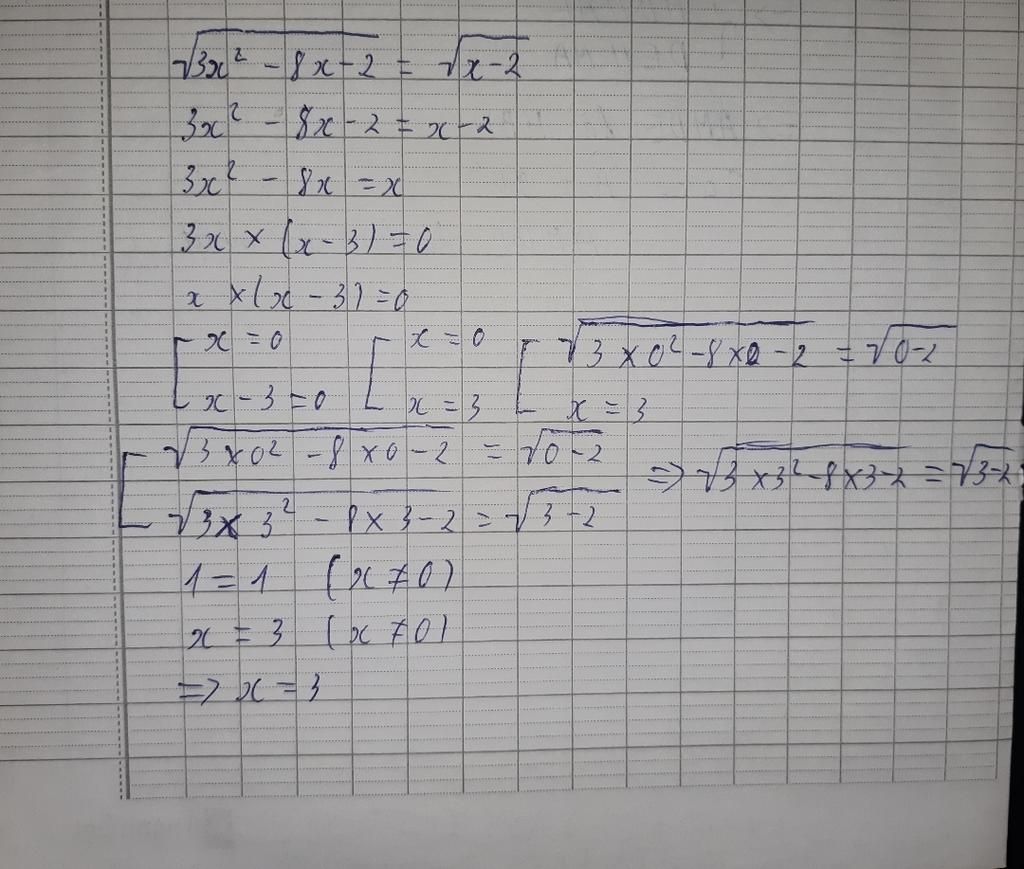 √(3x² - 8x - 2) = √(x - 2)
3x² - 8x - 2 = x - 2
3x² - 8x = x
3x × (x - 3) = 0
x × (x - 3) = 0
[ x = 0 [ x = 0 [ √(3 × 0² - 8 × 0 - 2) = √(0 - 2)
[ x - 3 = 0 [ x = 3 [ x = 3
[ √(3 × 0² - 8 × 0 - 2) = √(0 - 2) => √(3 × 3² - 8 × 3 - 2) = √(3 - 2)
[ √(3 × 3² - 8 × 3 - 2) = √(3 - 2)
1 = 1 (x ≠ 0)
x = 3 (x ≠ 0)
=> x = 3